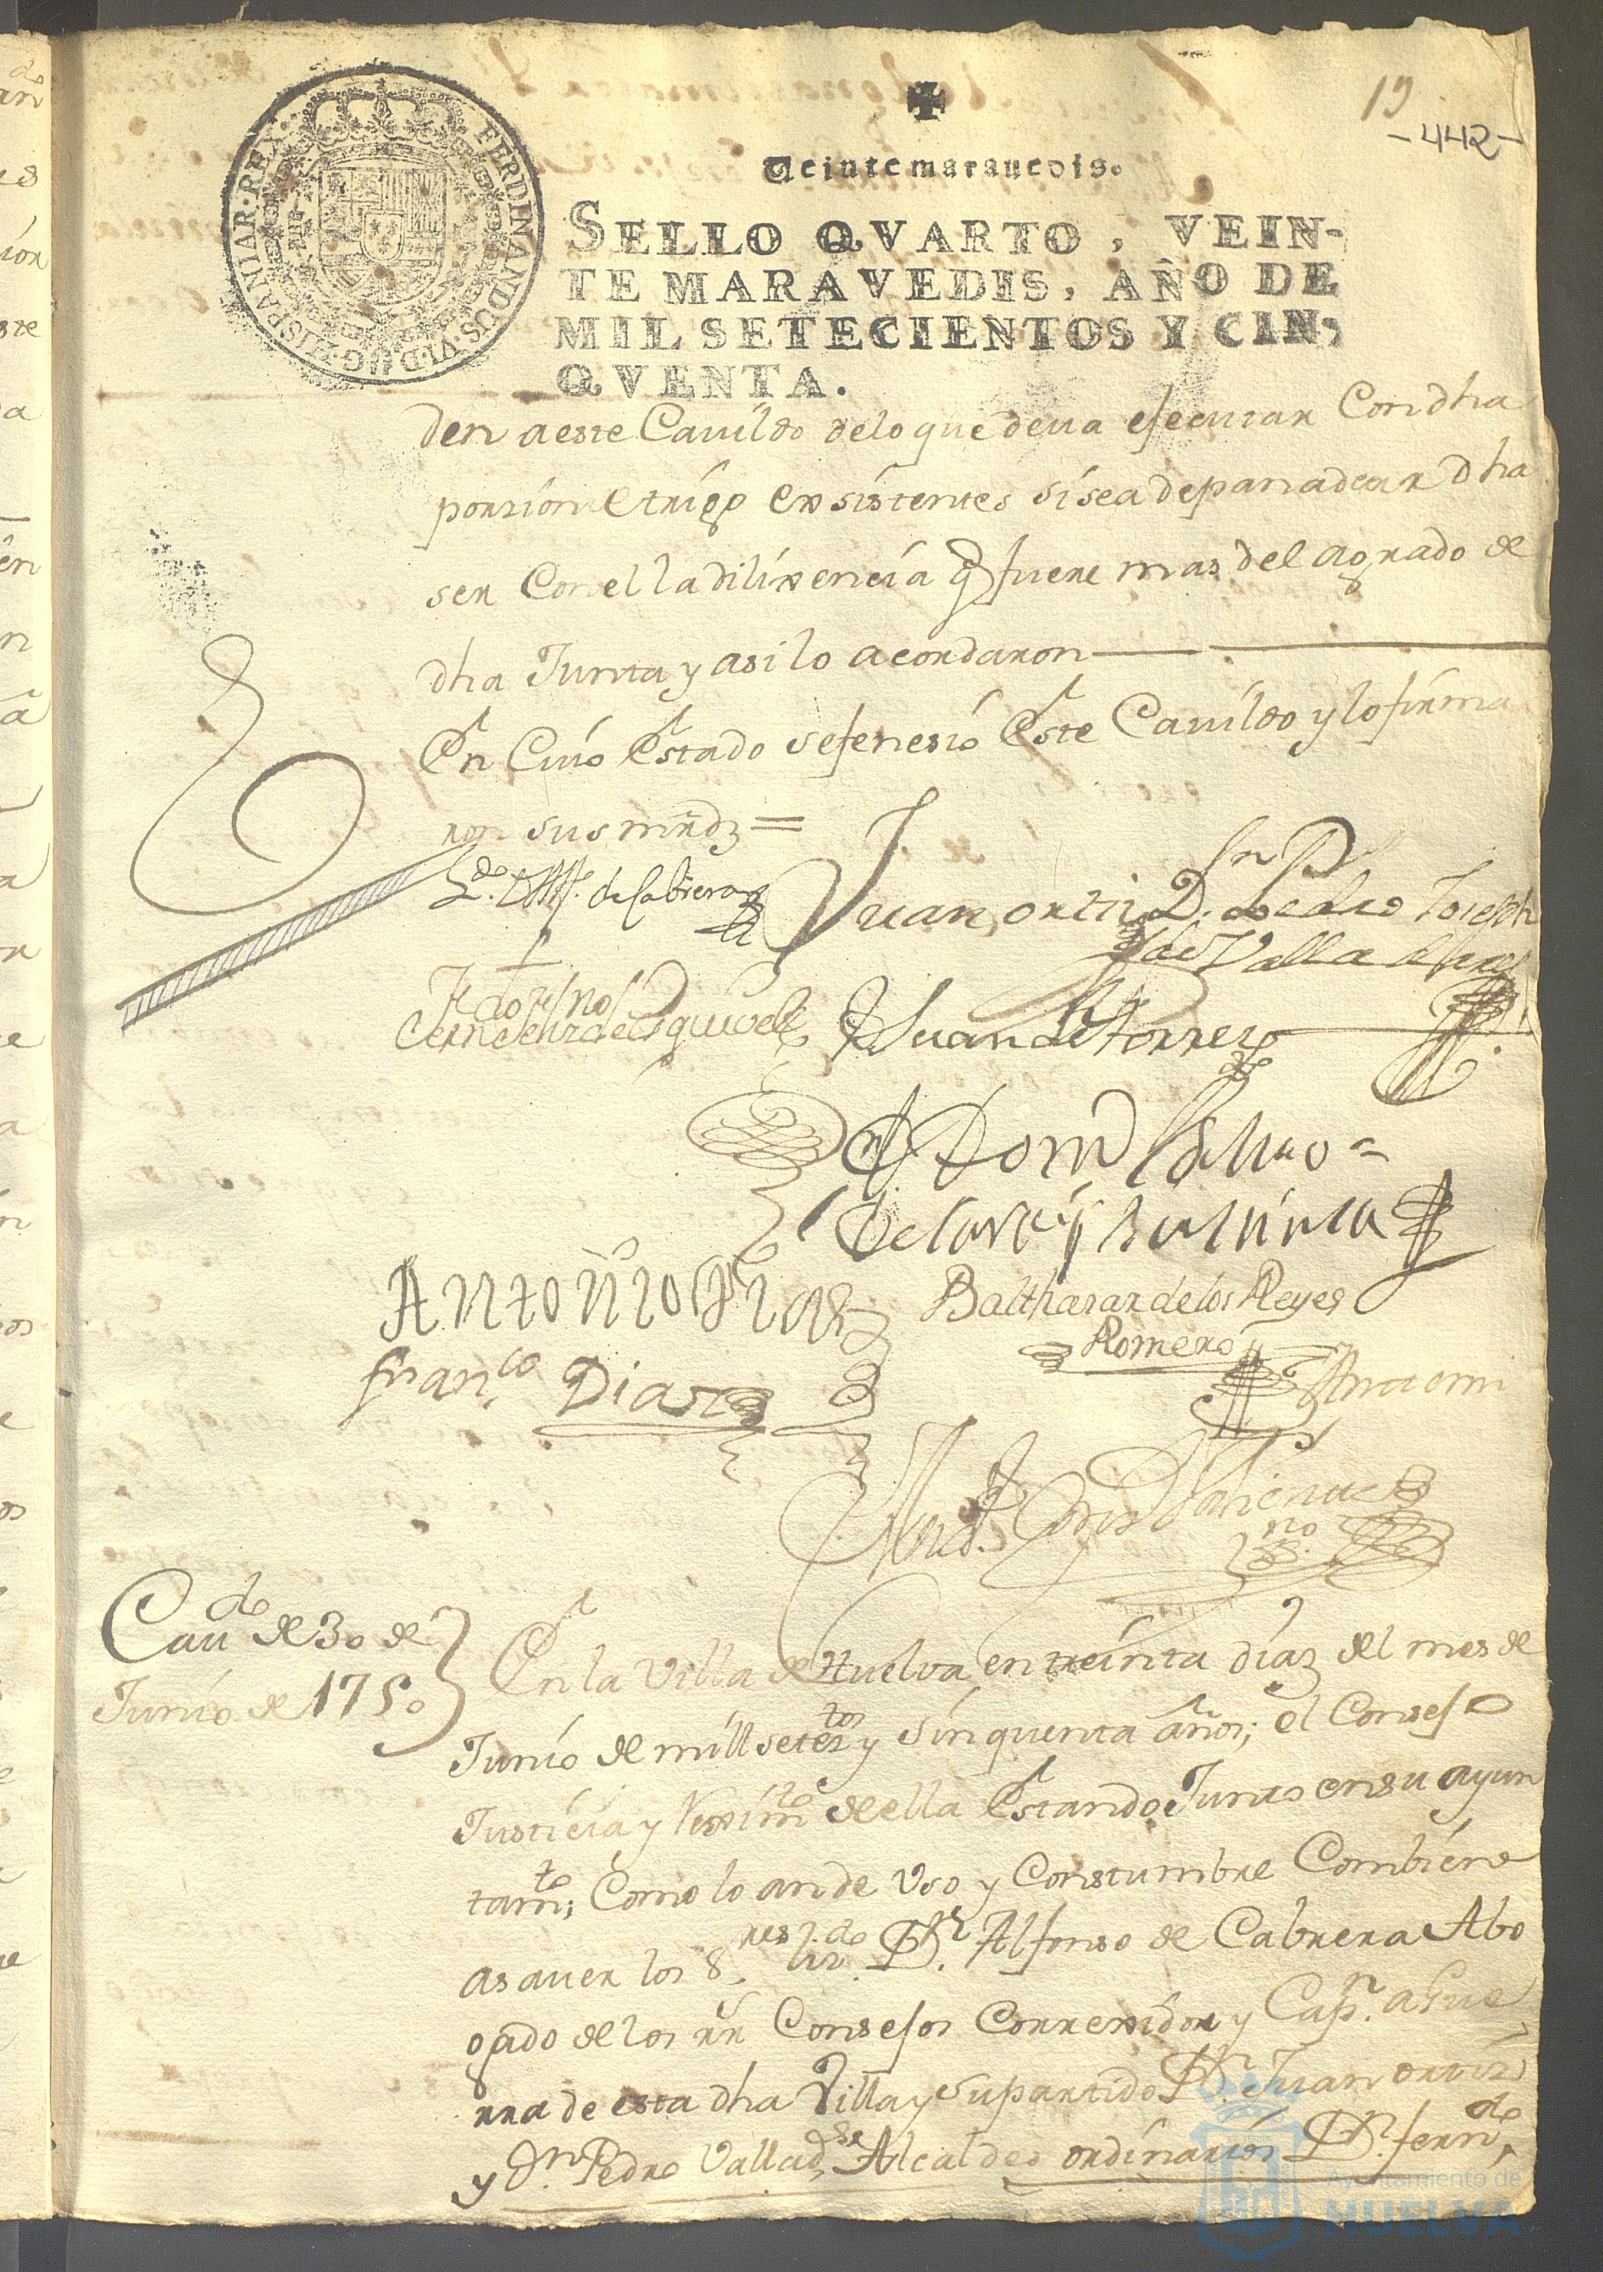 19
-442-
FERDINANDUS·VI·D·G·HISPANIAR·REX·
Veinte marauedis.
SELLO QVARTO, VEIN-
TE MARAVEDIS, AÑO DE
MIL SETECIENTOS Y CIN-
QVENTA.
den a este Cauildo de lo que deua ejecutar Con dha
porzion trigo exsistentes si sea de panadear dha
ser Con ella dilixencia q fuere mas del agrado de
dha Junta y asi lo acordaron
En Cuio Estado se fenesio Este Cauildo y lo firma
ron sus mrdz =
Ldo. de Cabrera
Juan ortiz
Dn. Pedro Joseph
de Valladares
de Esquivel
Juan de torres
Dom
Antonio
Balthasar de los Reyes
Romero
franco. Diaz
Ante mi
Caudo de 30 de
Junio de 1750
En la Villa de Huelva en treinta dias del mes de
Junio de mill seteztos y sinquenta años; el Consejo
Justicia y Reximto de ella Estando Junto en su ayun
tamto; Como lo an de Uso y Constumbre Combiene
asauer los Sres lizdo Dn. Alfonso de Cabrera Abo
gado de los RR Consejos Correxidor y Capn. a Gue
rra de esta dha Villa y Su partido Dn. Juan ortiz
y Dn. Pedro Valladrs Alcaldes ordinarios Dn. ferndo
Ayuntamiento de
HUELVA